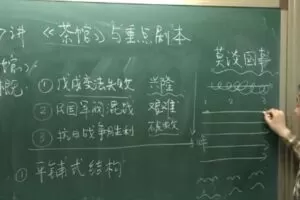 讲 《茶馆》与重点剧本
馆》
概况: ① 戊戌变法失败 兴隆
② 民国军阀混战 艰难
③ 抗日战争胜利
① 平铺式结构
莫谈国事
1 2 3